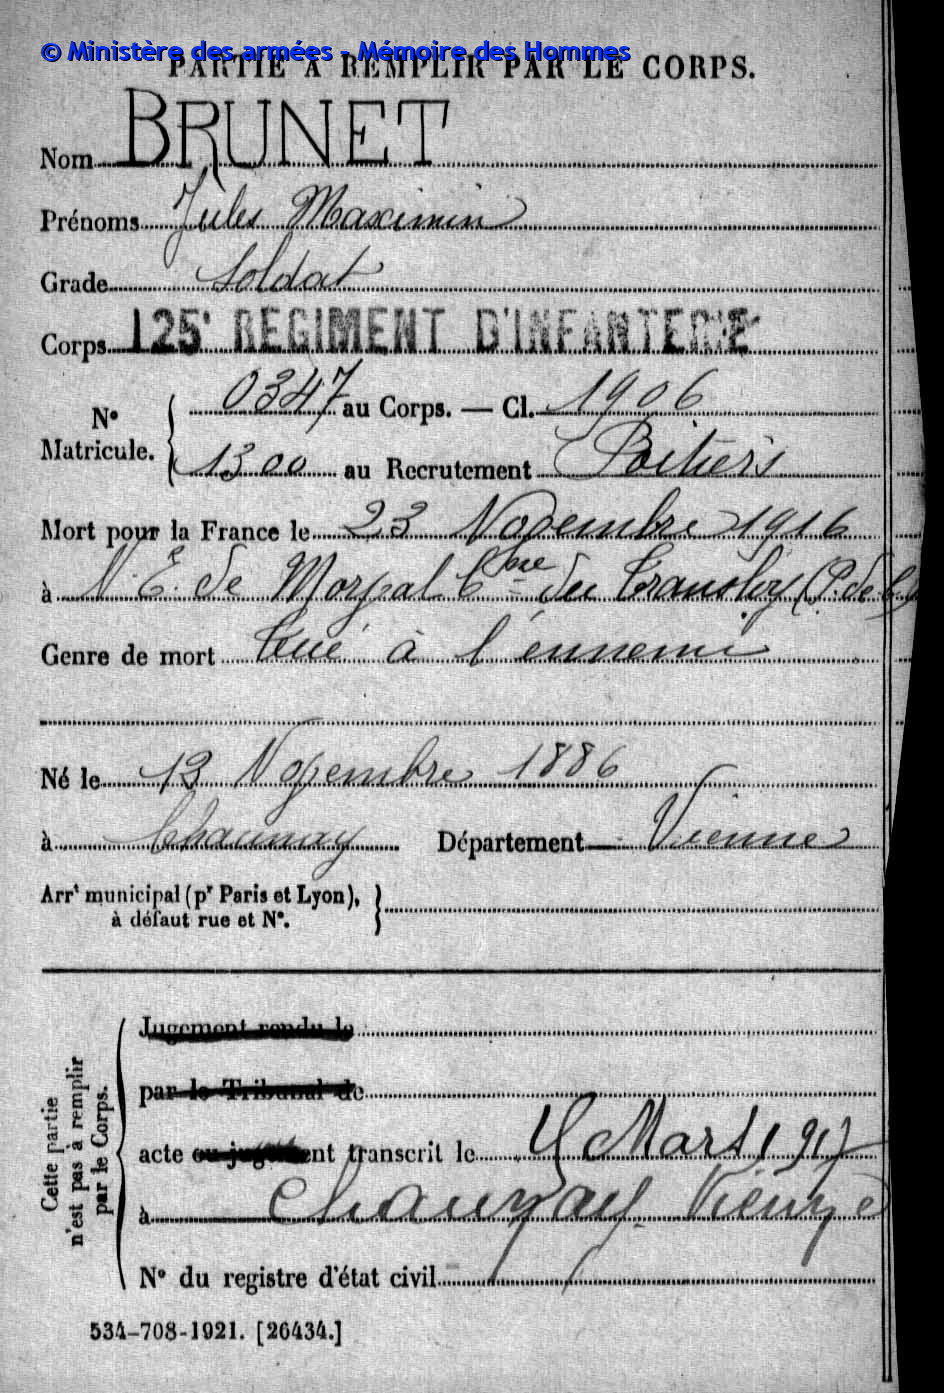 © Ministère des armées - Mémoire des Hommes
PARTIE À REMPLIR PAR LE CORPS.
Nom BRUNET
Prénoms Jules Maximin
Grade Soldat
Corps 125e REGIMENT D'INFANTERIE
N° Matricule. 0347 au Corps. — Cl. 1906
1300 au Recrutement Poitiers
Mort pour la France le 23 Novembre 1916
à N.E. de Morval Cne du Transloy (P. de C)
Genre de mort Tué à l'ennemi
Né le 13 Novembre 1886
à Chaunay Département Vienne
Arrt municipal (pr Paris et Lyon),
à défaut rue et N°.
Cette partie
n'est pas à remplir
par le Corps.
Jugement rendu le
par le Tribunal de
acte ou jugement transcrit le Mars 1917
à Chaunay. Vienne
N° du registre d'état civil
534-708-1921. [26434.]